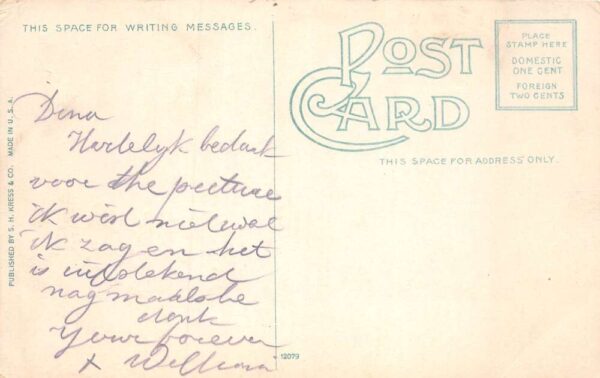 THIS SPACE FOR WRITING MESSAGES.
POST
CARD
PLACE
STAMP HERE
DOMESTIC
ONE CENT
FOREIGN
TWO CENTS
THIS SPACE FOR ADDRESS ONLY.
PUBLISHED BY S. H. KRESS & CO. MADE IN U. S. A.
Dina
Hertelyk bedank
voor the picture
ik wist niet wat
ik zag en het
is
dank
Your forever
x William
12079